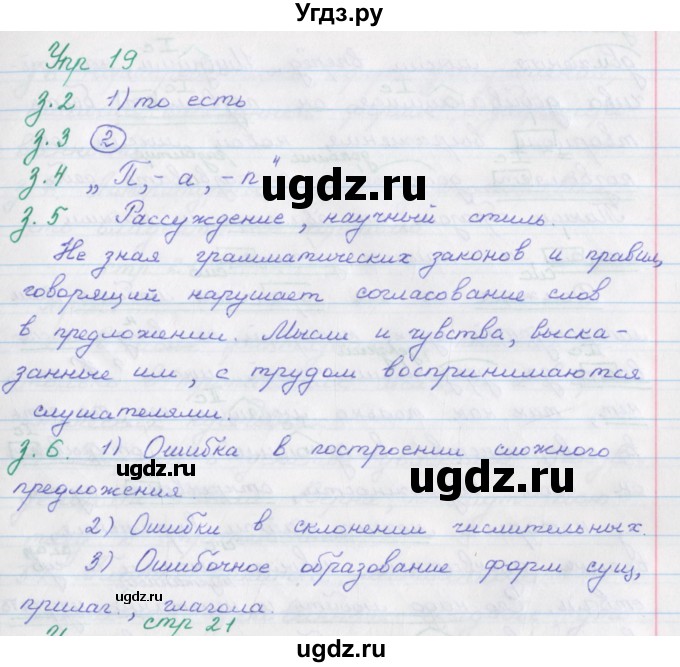 Угдз.ру
Упр 19
з.2 1) то есть
з.3 2
з.4 „П,- а, - п"
з.5 Рассуждение, научный стиль.
Не зная грамматических законов и правил,
говорящий нарушает согласование слов
в предложении. Мысли и чувства, выска-
занные им, с трудом воспринимаются
слушателями.
з.6. 1) Ошибка в построении сложного
предложения
2) Ошибки в склонении числительных.
3) Ошибочное образование форм сущ,
прилаг., глагола.
стр 21
ugdz.ru
ugdz.ru
ugdz.ru
ugdz.ru
ugdz.ru
ugdz.ru
ugdz.ru